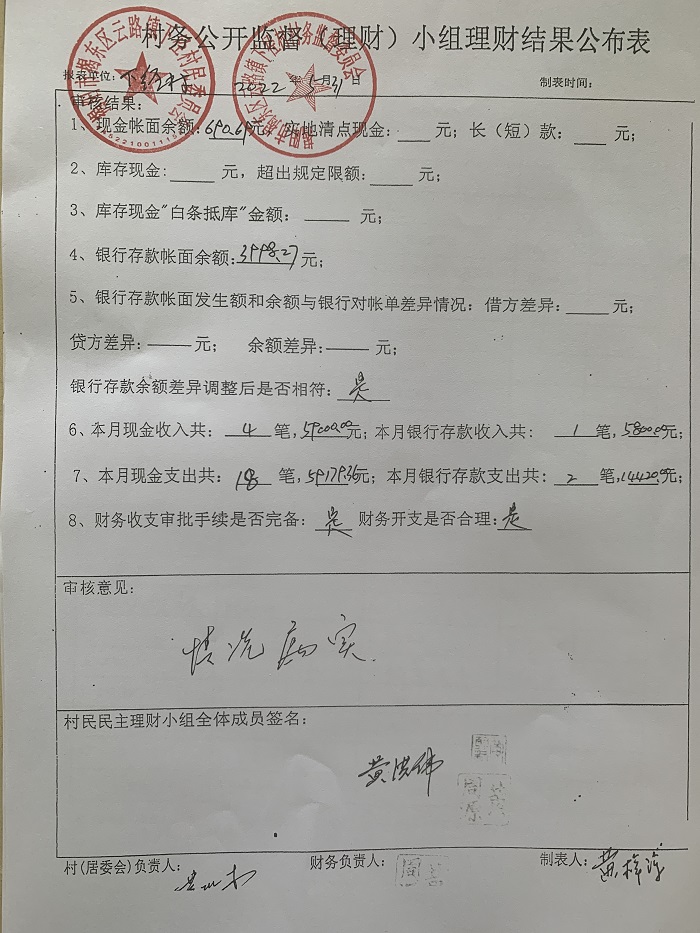 村务公开监督（理财）小组理财结果公布表
报表单位: 下径村 2022年5月31日 制表时间:
审核结果:
1、现金帐面余额: 690.69元, 实地清点现金: ___ 元; 长（短）款: ___ 元;
2、库存现金: ____ 元, 超出规定限额: ____ 元;
3、库存现金"白条抵库"金额: ____ 元;
4、银行存款帐面余额: 3998.27元;
5、银行存款帐面发生额和余额与银行对帐单差异情况: 借方差异: ____ 元;
贷方差异: ____ 元; 余额差异: ____ 元;
银行存款余额差异调整后是否相符: 是
6、本月现金收入共: 4 笔, 59000.00元; 本月银行存款收入共: 1 笔, 5800.00元;
7、本月现金支出共: 18 笔, 59179.36元; 本月银行存款支出共: 2 笔, 14420.00元;
8、财务收支审批手续是否完备: 是 财务开支是否合理: 是
审核意见:
情况属实.
村民民主理财小组全体成员签名:
黄洪伟
村(居委会)负责人: 财务负责人: 制表人: 黄梓淳